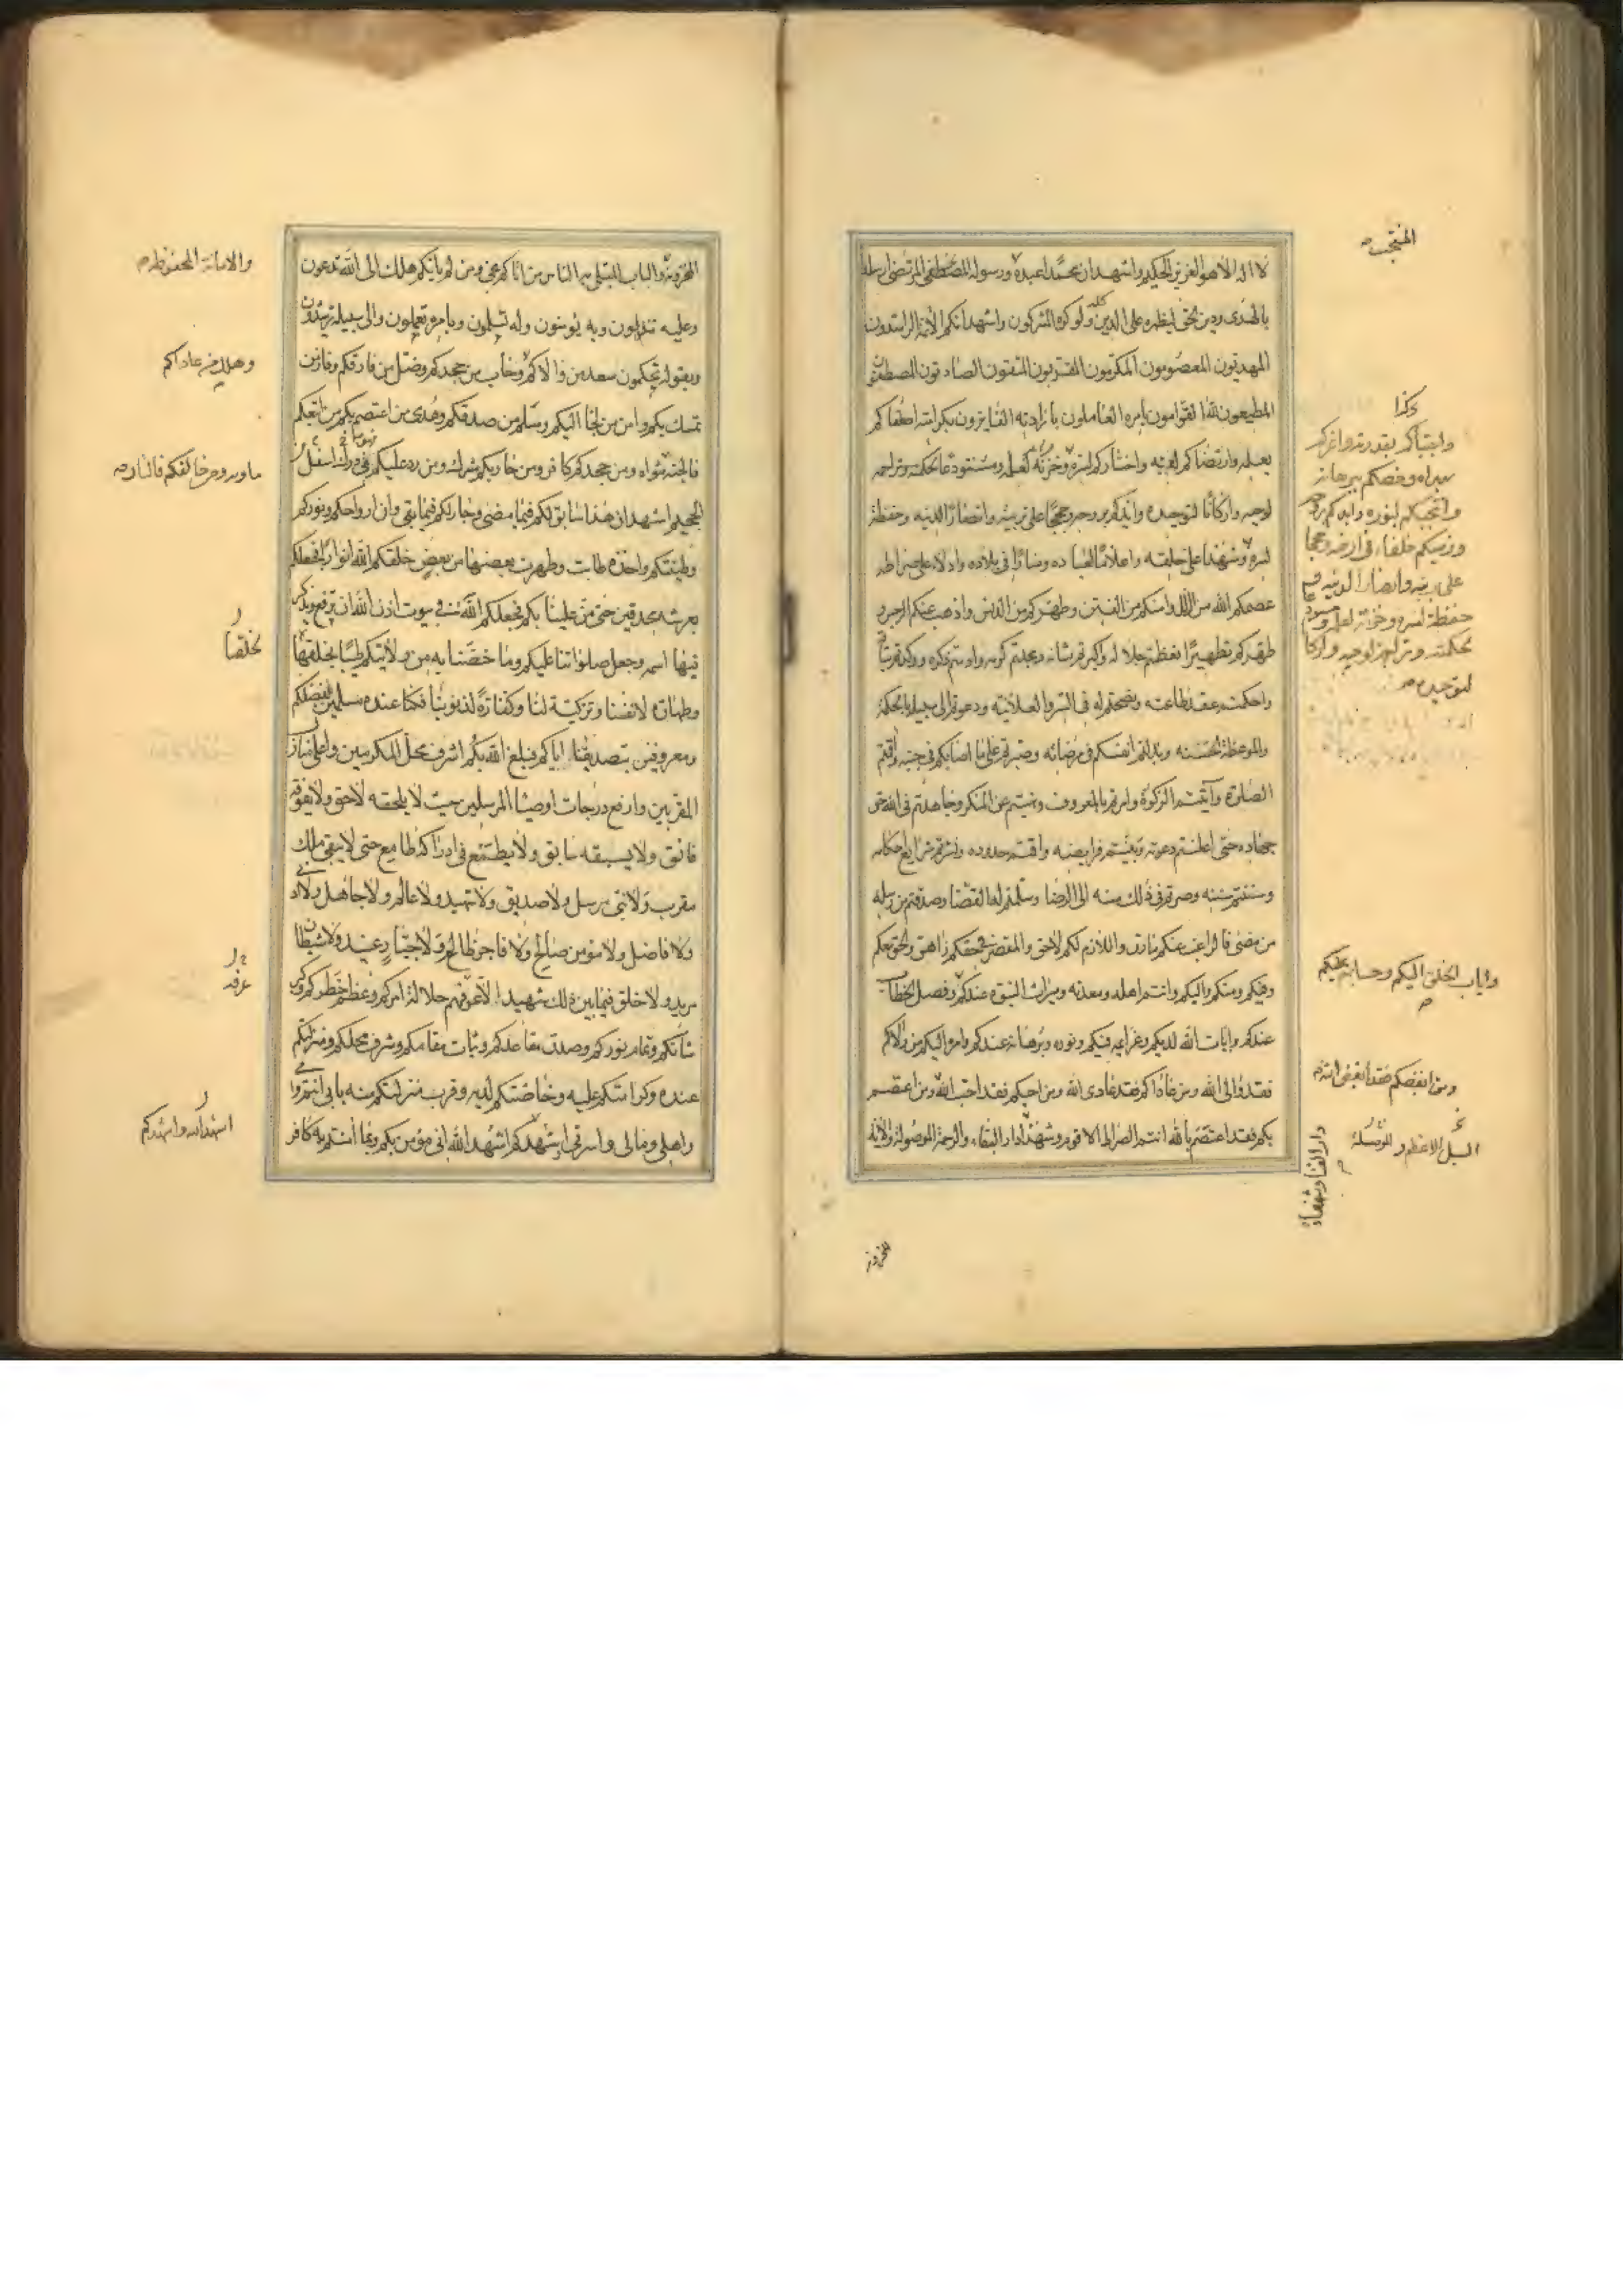 لا اله الا هو العزيز الحكيم واشهد ان محمدا عبده ورسوله المصطفى المرتضى ارسله
بالهدى ودين الحق ليظهره على الدين كله ولو كره المشركون واشهد انكم الائمة الراشدون
المهديون المعصومون المكرمون المقربون المتقون الصادقون المصطفون
المطيعون لله القوامون بامره العاملون بارادته الفايزون بكرامته اصطفاكم
بعلمه وارتضاكم لغيبه واختاركم لسره وخزنة لعلمه ومستودعا لحكمته وتراجمة
لوحيه واركانا لتوحيده وايدكم بروحه وحججا على بريته وانصارا لدينه وحفظة
لسره وشهداء على خلقه واعلاما لعباده ومنارا في بلاده وادلاء على صراطه
عصمكم الله من الزلل وامنكم من الفتن وطهركم من الدنس واذهب عنكم الرجس و
طهركم تطهيرا فعظمتم جلاله واكبرتم شانه ومجدتم كرمه وادمتم ذكره ووكدتم ميثاقه
واحكمتم عقد طاعته ونصحتم له في السر والعلانية ودعوتم الى سبيله بالحكمة
والموعظة الحسنة وبذلتم انفسكم في مرضاته وصبرتم على ما اصابكم في جنبه واقمتم
الصلوة وآتيتم الزكوة وامرتم بالمعروف ونهيتم عن المنكر وجاهدتم في الله حق
جهاده حتى اعلنتم دعوته وبينتم فرايضه واقمتم حدوده ونشرتم شرايع احكامه
وسننتم سنته وصرتم في ذلك منه الى الرضا وسلمتم له القضا وصدقتم من رسله
من مضى فالراغب عنكم مارق واللازم لكم لاحق والمقصر في حقكم زاهق والحق معكم
وفيكم ومنكم واليكم وانتم اهله ومعدنه وميراث النبوة عندكم وفصل الخطاب
عندكم وايات الله لديكم وعزايمه فيكم ونوره وبرهانه عندكم وامره اليكم من والاكم
فقد والى الله ومن عاداكم فقد عادى الله ومن احبكم فقد احب الله ومن اعتصم
بكم فقد اعتصم بالله انتم الصراط الاقوم وشهداء دار البقاء والرحمة الموصولة والاية
المنتجب
واجتباكم بقدرته واعزكم
بهداه وخصكم ببرهانه
وانتجبكم لنوره وايدكم بروحه
ورضيكم خلفاء في ارضه وحججا
على بريته وانصارا لدينه
حفظة لسره وخزنة لعلمه ومستودعا
لحكمته وتراجمة لوحيه واركانا
لتوحيده
واياب الخلق اليكم وحسابهم عليكم
ومن ابغضكم فقد ابغض الله
السبيل الاعظم و
دار الفناء وشفعاء
المخزونة
المخزونة والباب المبتلى به الناس من اتاكم نجى ومن لم ياتكم هلك الى الله تدعون
وعليه تدلون وبه تؤمنون وله تسلمون وبامره تعملون والى سبيله ترشدون
وبقوله تحكمون سعد من والاكم وخاب من جحدكم وضل من فارقكم وفاز من
تمسك بكم وامن من لجا اليكم وسلم من صدقكم وهدى من اعتصم بكم من اتبعكم
فالجنة مثواه ومن جحدكم كافر ومن حاربكم مشرك ومن رد عليكم في درك اسفل
الجحيم اشهد ان هذا سابق لكم فيما مضى وجار لكم فيما بقي وان ارواحكم ونوركم
وطينتكم واحدة طابت وطهرت بعضها من بعض خلقكم الله انوارا فجعلكم
بعرشه محدقين حتى من علينا بكم فجعلكم الله في بيوت اذن الله ان ترفع ويذكر
فيها اسمه وجعل صلواتنا عليكم وما خصنا به من ولايتكم طيبا لخلقنا
وطهارة لانفسنا وتزكية لنا وكفارة لذنوبنا فكنا عنده مسلمين بفضلكم
ومعروفين بتصديقنا اياكم فبلغ الله بكم اشرف محل المكرمين واعلى منازل
المقربين وارفع درجات اوصيا المرسلين حيث لا يلحقه لاحق ولا يفوقه
فائق ولا يسبقه سابق ولا يطمع في ادراكه طامع حتى لا يبقى ملك
مقرب ولا نبي مرسل ولا صديق ولا شهيد ولا عالم ولا جاهل ولا دني
ولا فاضل ولا مؤمن صالح ولا فاجر طالح ولا جبار عنيد ولا شيطان
مريد ولا خلق فيما بين ذلك شهيد الا عرفهم جلالة امركم وعظم خطركم وكبر
شانكم وتمام نوركم وصدق مقاعدكم وثبات مقامكم وشرف محلكم ومنزلتكم
عنده وكرامتكم عليه وخاصتكم لديه وقرب منزلتكم منه بابي انتم وامي
واهلي ومالي واسرتي اشهدكم اشهد الله اني مؤمن بكم وبما امنتم به كافر
والامانة المحفوظة
وهلك من عاداكم
ماويه ومن خالفكم فالنار
لخلقنا
عرفه
اشهد الله واشهدكم